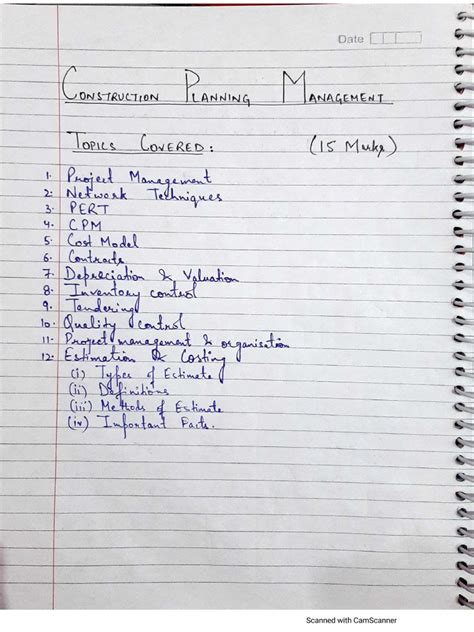 Date
CONSTRUCTION PLANNING MANAGEMENT
TOPICS COVERED: (15 Marks)
1. Project Management
2. Network Techniques
3. PERT
4. CPM
5. Cost Model
6. Contracts
7. Depreciation & Valuation
8. Inventory control
9. Tendering
10. Quality control
11. Project management & organisation
12. Estimation & Costing
(i) Types of Estimate
(ii) Definitions
(iii) Methods of Estimate
(iv) Important Facts.
Scanned with CamScanner